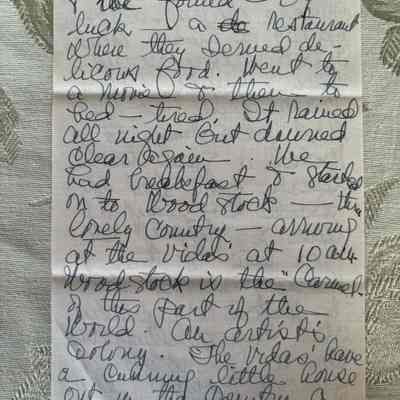 luck — a restaurant
where they served de-
licious food. Went to
a movie & then to
bed — tired. It rained
all night but dawned
clear again. We
had breakfast & started
on to Woodstock — thru
lovely country — arriving
at the Vidas' at 10 am.
Woodstock is the "Carmel"
of this part of the
world. An artist's
colony. The Vidas' have
a cunning little house
out in the country